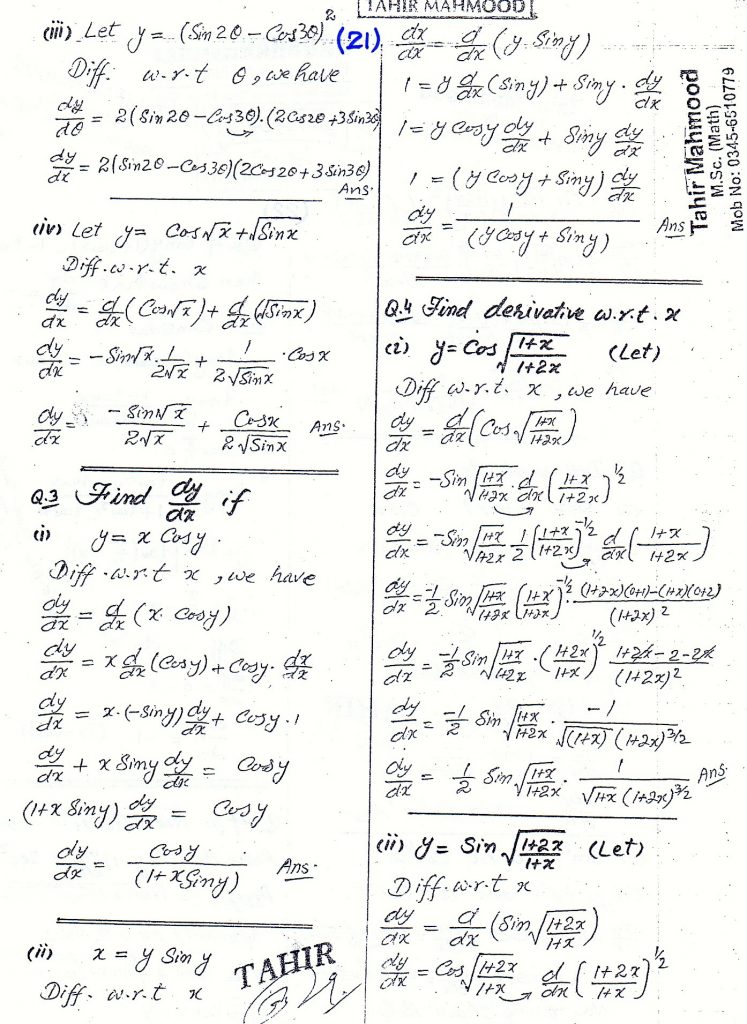 TAHIR MAHMOOD
(21)
(iii) Let y = (Sin2θ - Cos3θ)²
Diff. w.r.t θ, we have
dy/dθ = 2(Sin2θ - Cos3θ).(2Cos2θ + 3Sin3θ)
dy/dx = 2(Sin2θ - Cos3θ)(2Cos2θ + 3Sin3θ)
Ans.
(iv) Let y = Cos√x + √Sinx
Diff. w.r.t. x
dy/dx = d/dx (Cos√x) + d/dx (√Sinx)
dy/dx = -Sin√x . 1/2√x + 1/2√Sinx . Cosx
dy/dx = -Sin√x/2√x + Cosx/2√Sinx Ans.
Q.3 Find dy/dx if
(i) y = x Cosy.
Diff. w.r.t x, we have
dy/dx = d/dx (x. Cosy)
dy/dx = x d/dx (Cosy) + Cosy. dx/dx
dy/dx = x.(-Siny) dy/dx + Cosy.1
dy/dx + x Siny dy/dx = Cosy
(1+x Siny) dy/dx = Cosy
dy/dx = Cosy/(1+xSiny) Ans.
(ii) x = y Sin y
Diff. w.r.t x
TAHIR
dx/dx = d/dx (y Siny)
1 = y d/dx (Siny) + Siny . dy/dx
1 = y Cosy dy/dx + Siny dy/dx
1 = (y Cosy + Siny) dy/dx
dy/dx = 1/(y Cosy + Siny) Ans
Tahir Mahmood
M.Sc. (Math)
Mob No: 0345-6510779
Q.4 Find derivative w.r.t. x
(i) y = Cos √(1+x/1+2x) (Let)
Diff w.r.t. x, we have
dy/dx = d/dx (Cos √(1+x/1+2x))
dy/dx = -Sin √(1+x/1+2x) . d/dx (1+x/1+2x)^1/2
dy/dx = -Sin √(1+x/1+2x) 1/2 (1+x/1+2x)^-1/2 d/dx (1+x/1+2x)
dy/dx = -1/2 Sin √(1+x/1+2x) (1+x/1+2x)^-1/2 . (1+2x)(0+1)-(1+x)(0+2)/(1+2x)²
dy/dx = -1/2 Sin √(1+x/1+2x) . (1+2x/1+x)^1/2 1+2x-2-2x/(1+2x)²
dy/dx = -1/2 Sin √(1+x/1+2x) . -1/√(1+x) (1+2x)^3/2
dy/dx = 1/2 Sin √(1+x/1+2x) . 1/√1+x (1+2x)^3/2 Ans.
(ii) y = Sin √(1+2x/1+x) (Let)
Diff. w.r.t x
dy/dx = d/dx (Sin √(1+2x/1+x))
dy/dx = Cos √(1+2x/1+x) d/dx (1+2x/1+x)^1/2